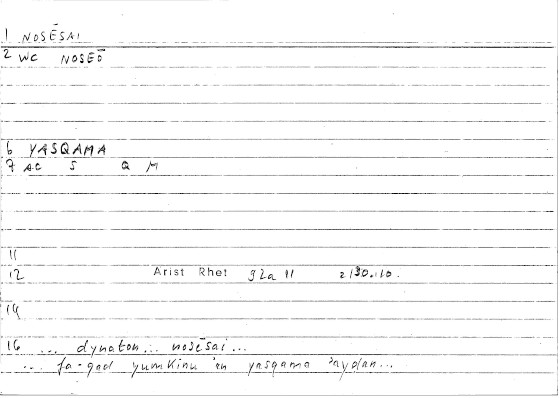 1 NOSĒSAI
2 WC NOSEŌ
6 YASQAMA
7 AC S Q M
11
12 Arist Rhet 92a 11
14
16 ... dynaton... nosēsai...
... fa-qad yumkinu 'an yasqama 'ayḍan...